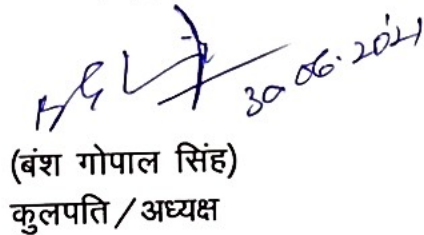 30.06.2021
(बंश गोपाल सिंह)
कुलपति / अध्यक्ष